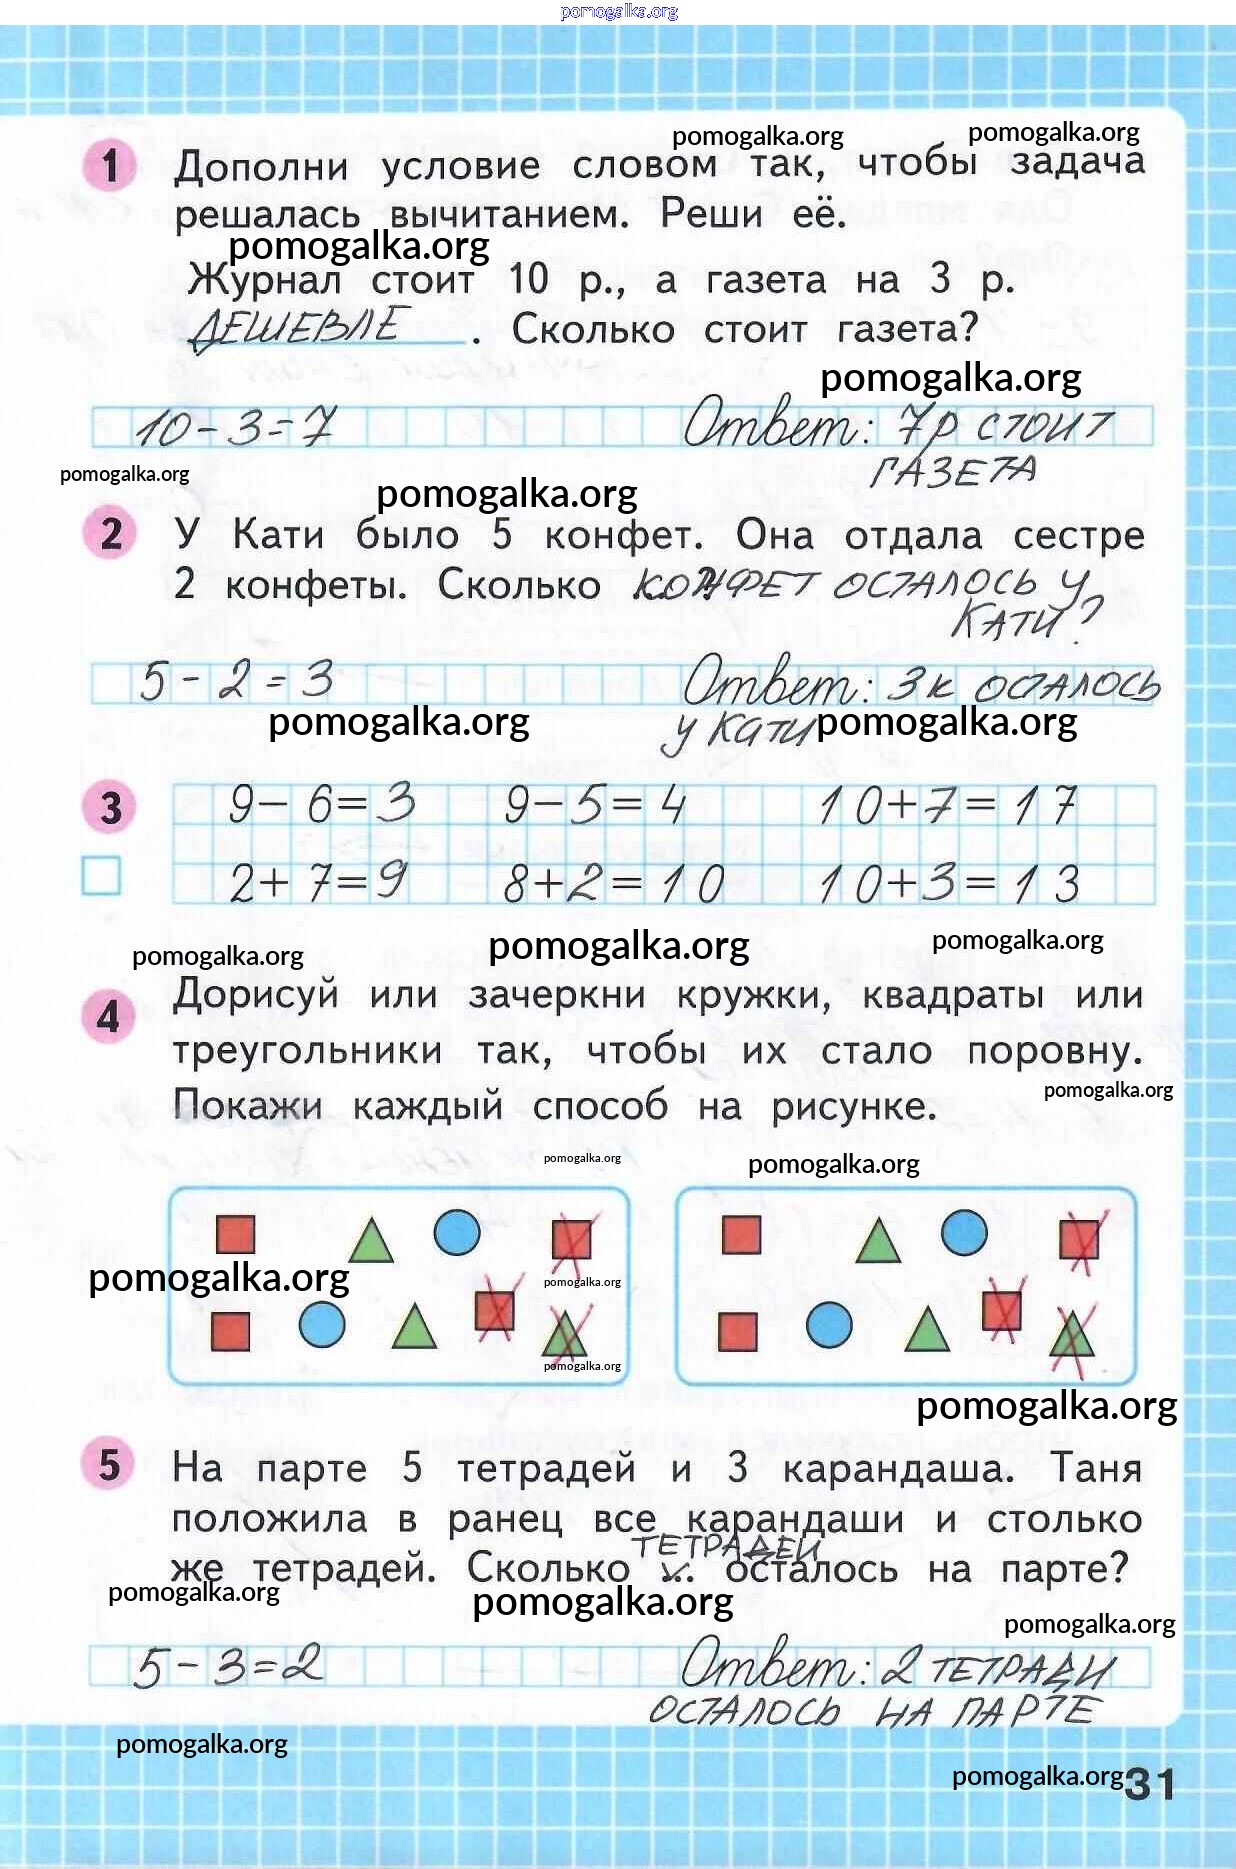 pomogalka.org
pomogalka.org pomogalka.org
1 Дополни условие словом так, чтобы задача
решалась вычитанием. Реши её.
pomogalka.org
Журнал стоит 10 р., а газета на 3 р.
ДЕШЕВЛЕ . Сколько стоит газета?
pomogalka.org
10-3=7 Ответ: 7р СТОИТ
ГАЗЕТА
pomogalka.org pomogalka.org
2 У Кати было 5 конфет. Она отдала сестре
2 конфеты. Сколько КОНФЕТ ОСТАЛОСЬ У
КАТИ?
5-2=3 Ответ: 3к ОСТАЛОСЬ
У КАТИ
pomogalka.org pomogalka.org
3 9-6=3 9-5=4 10+7=17
2+7=9 8+2=10 10+3=13
pomogalka.org pomogalka.org pomogalka.org
4 Дорисуй или зачеркни кружки, квадраты или
треугольники так, чтобы их стало поровну.
Покажи каждый способ на рисунке.
pomogalka.org
pomogalka.org pomogalka.org
pomogalka.org pomogalka.org
pomogalka.org
pomogalka.org
5 На парте 5 тетрадей и 3 карандаша. Таня
положила в ранец все карандаши и столько
ТЕТРАДЕЙ
же тетрадей. Сколько ... осталось на парте?
pomogalka.org pomogalka.org pomogalka.org
5-3=2 Ответ: 2 ТЕТРАДИ
ОСТАЛОСЬ НА ПАРТЕ
pomogalka.org
pomogalka.org 31